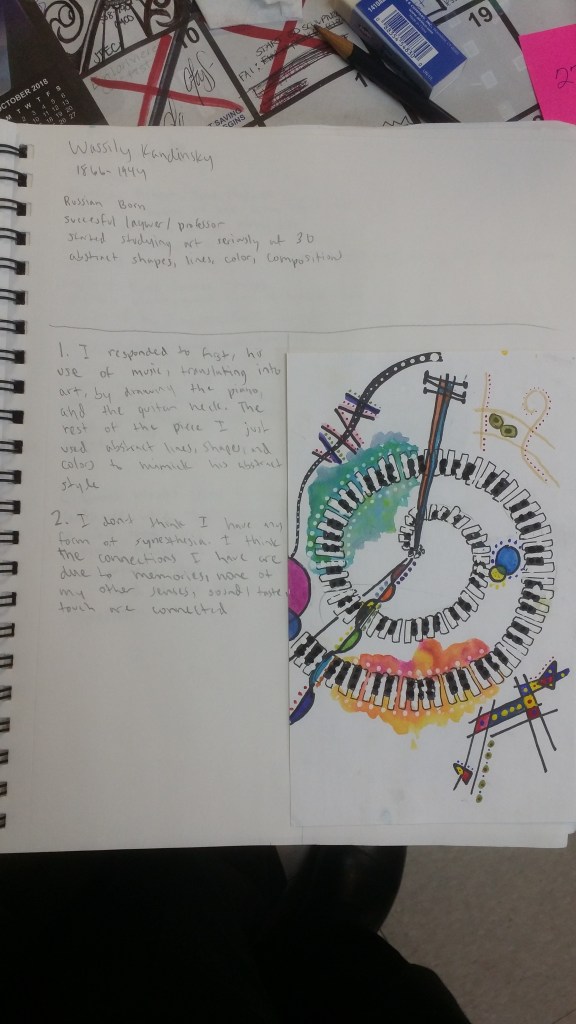 19
10
OCTOBER 2018
M T W T F S
BEGINS
Wassily Kandinsky
1866-1944
Russian Born
succesful laywer/professor
started studying art seriously at 30
abstract shapes, lines, color, composition
1. I responded to first, his
use of music, translating into
art, by drawing the piano,
and the guitar neck. The
rest of the piece I just
used abstract lines, shapes, and
colors to mimick his abstract
style
2. I don't think I have any
form of synesthesia. I think
the connections I have are
due to memories, none of
my other senses, sound/taste
touch are connected